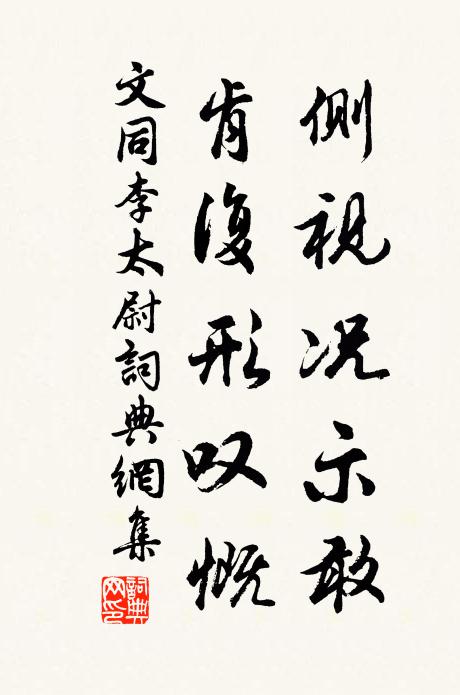 側視况示敢
肯復形叹慨
文同李太尉詞典網集
詞典網印